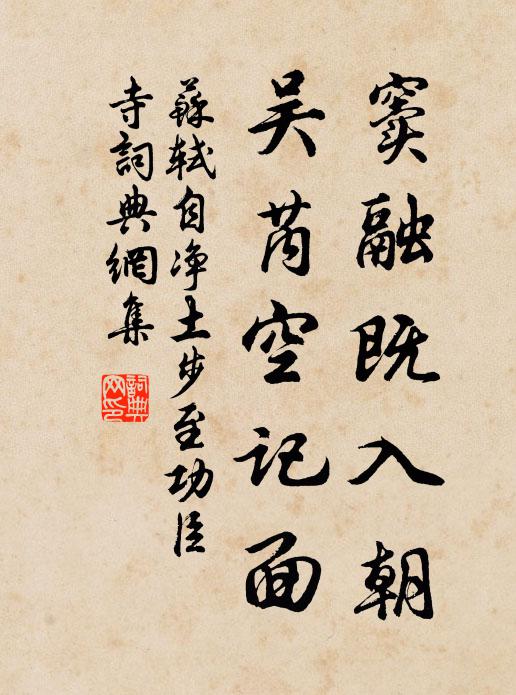 竇融既入朝
吴芮空記面
蘇軾自净土步至功臣
寺詞典網集
詞典
网印